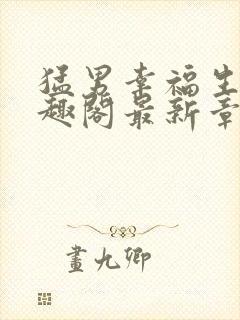 猛男幸福生
趣阁最新章
畫九卿